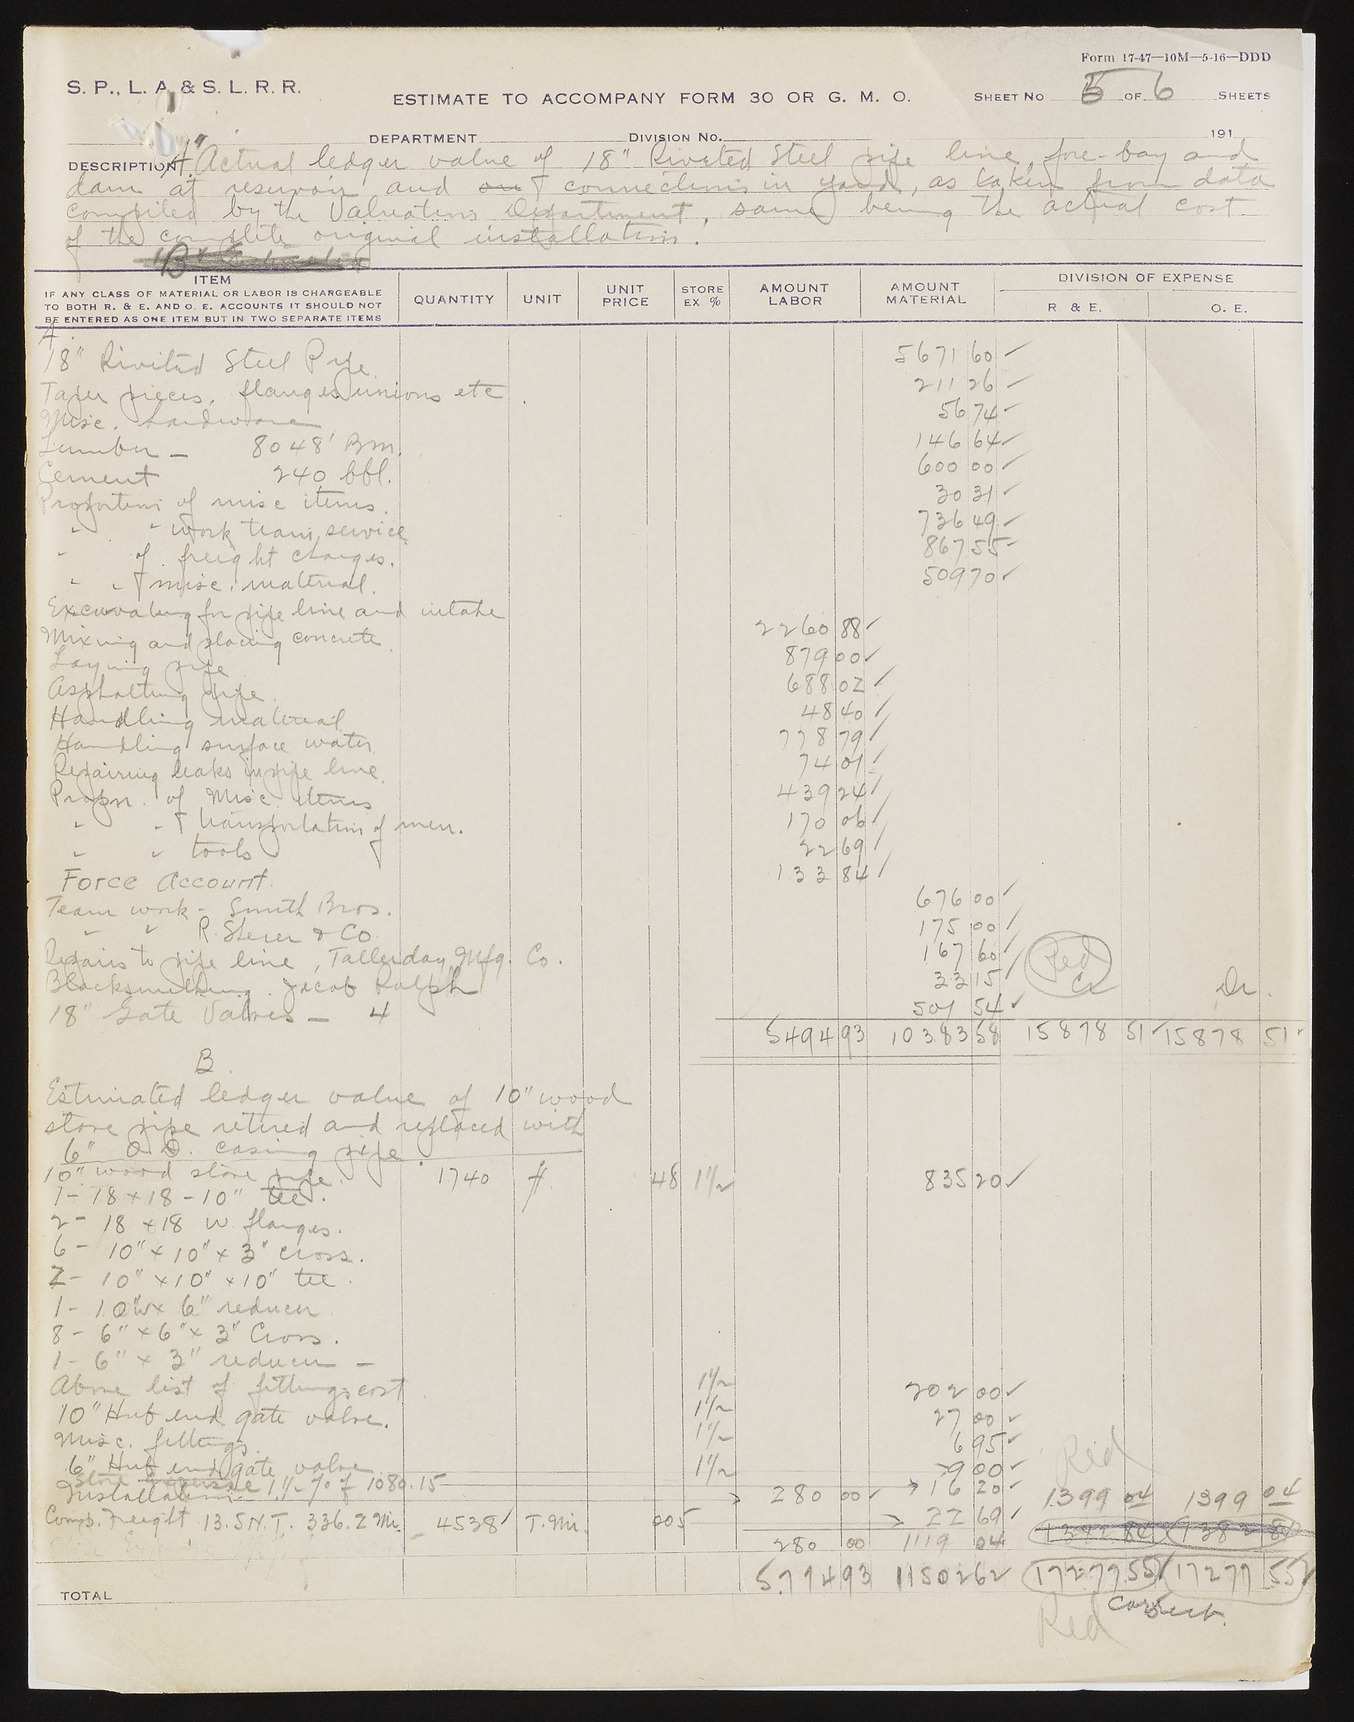 Form 17-47—10M—5-16—DDD
S. P., L. A. & S. L. R. R.
ESTIMATE TO ACCOMPANY FORM 30 OR G. M. O.
SHEET NO 5 OF 6 SHEETS
DEPARTMENT DIVISION NO. 191
DESCRIPTION "A" Actual ledger value of 18" Riveted Steel pipe line, fore-bay and
dam at reservoir and connections in yards, as taken from data
compiled by the Valuation Department, same being the actual cost
of the complete original installation.
"B"
ITEM
IF ANY CLASS OF MATERIAL OR LABOR IS CHARGEABLE
TO BOTH R. & E. AND O. E. ACCOUNTS IT SHOULD NOT
BE ENTERED AS ONE ITEM BUT IN TWO SEPARATE ITEMS
QUANTITY UNIT UNIT PRICE STORE EX % AMOUNT LABOR AMOUNT MATERIAL DIVISION OF EXPENSE R & E. O. E.
A.
18" Riveted Steel Pipe 5671 60 ✓
Taper pieces, flanges unions etc. 211 26 ✓
Misc. hardware 56 74 ✓
Lumber — 8048' Bm. 146 64 ✓
Cement 240 bbl. 600 00 ✓
Proportion of misc items. 30 31 ✓
" " work train service 736 49 ✓
" of freight charges. 867 55 ✓
" " of misc. material. 509 70 ✓
Excavating for pipe line and intake 2260 88 ✓
Mixing and placing concrete 879 00 ✓
Laying pipe 688 02 ✓
Asphalting pipe. 48 40 ✓
Handling material 778 79 ✓
Handling surface water 74 01 ✓
Repairing leaks in pipe line. 439 24 ✓
Propn. of Misc. items 170 06 ✓
" " of transportation of men. 22 69 ✓
" " tools 133 84 ✓
Force Account.
Team work - Smith Bros. 676 00 ✓
" " R. Sterer & Co 175 00 ✓
Repairs to pipe line, Tallerday Mfg. Co. 167 60 ✓
Blacksmithing. Jacob Ralph 32 15 ✓ Red Cr Dr.
18" Gate Valves — 4 501 54 ✓
5494 93 10383 58 15878 51 ✓ 15878 51 ✓
B.
Estimated ledger value of 10" wood
stave pipe retired and replaced with
6" O.D. casing pipe.
10" wood stave pipe. 1740 ft. 48 1½ 835 20 ✓
1- 18 x 18 - 10" tee.
2- 18 x 18 W flanges.
6- 10" x 10" x 3" cross.
2- 10" x 10" x 10" tee.
1- 10" W x 6" reducer
8- 6" x 6" x 3" Cross.
1- 6" x 3" reducer —
Above list of fittings cost 1½ 202 00 ✓
10" Hub end gate valve. 1½ 27 00 ✓
Misc. fittings 1½ 6 95 ✓
6" Hub end gate valve 1½ 9 00 ✓ Red
Store expense 1½ % of 1080.15 16 20 ✓
Installation 280 00 ✓ 1399 04 1399 04
Comp. Freight 13.5 N.T. 336.2 Mi. 4538 ✓ T. Mi. 005 22 69 ✓
280 00 1119 04
5774 93 11502 62 17277.55 ✓ 17277 55 ✓
TOTAL
Red Correct.